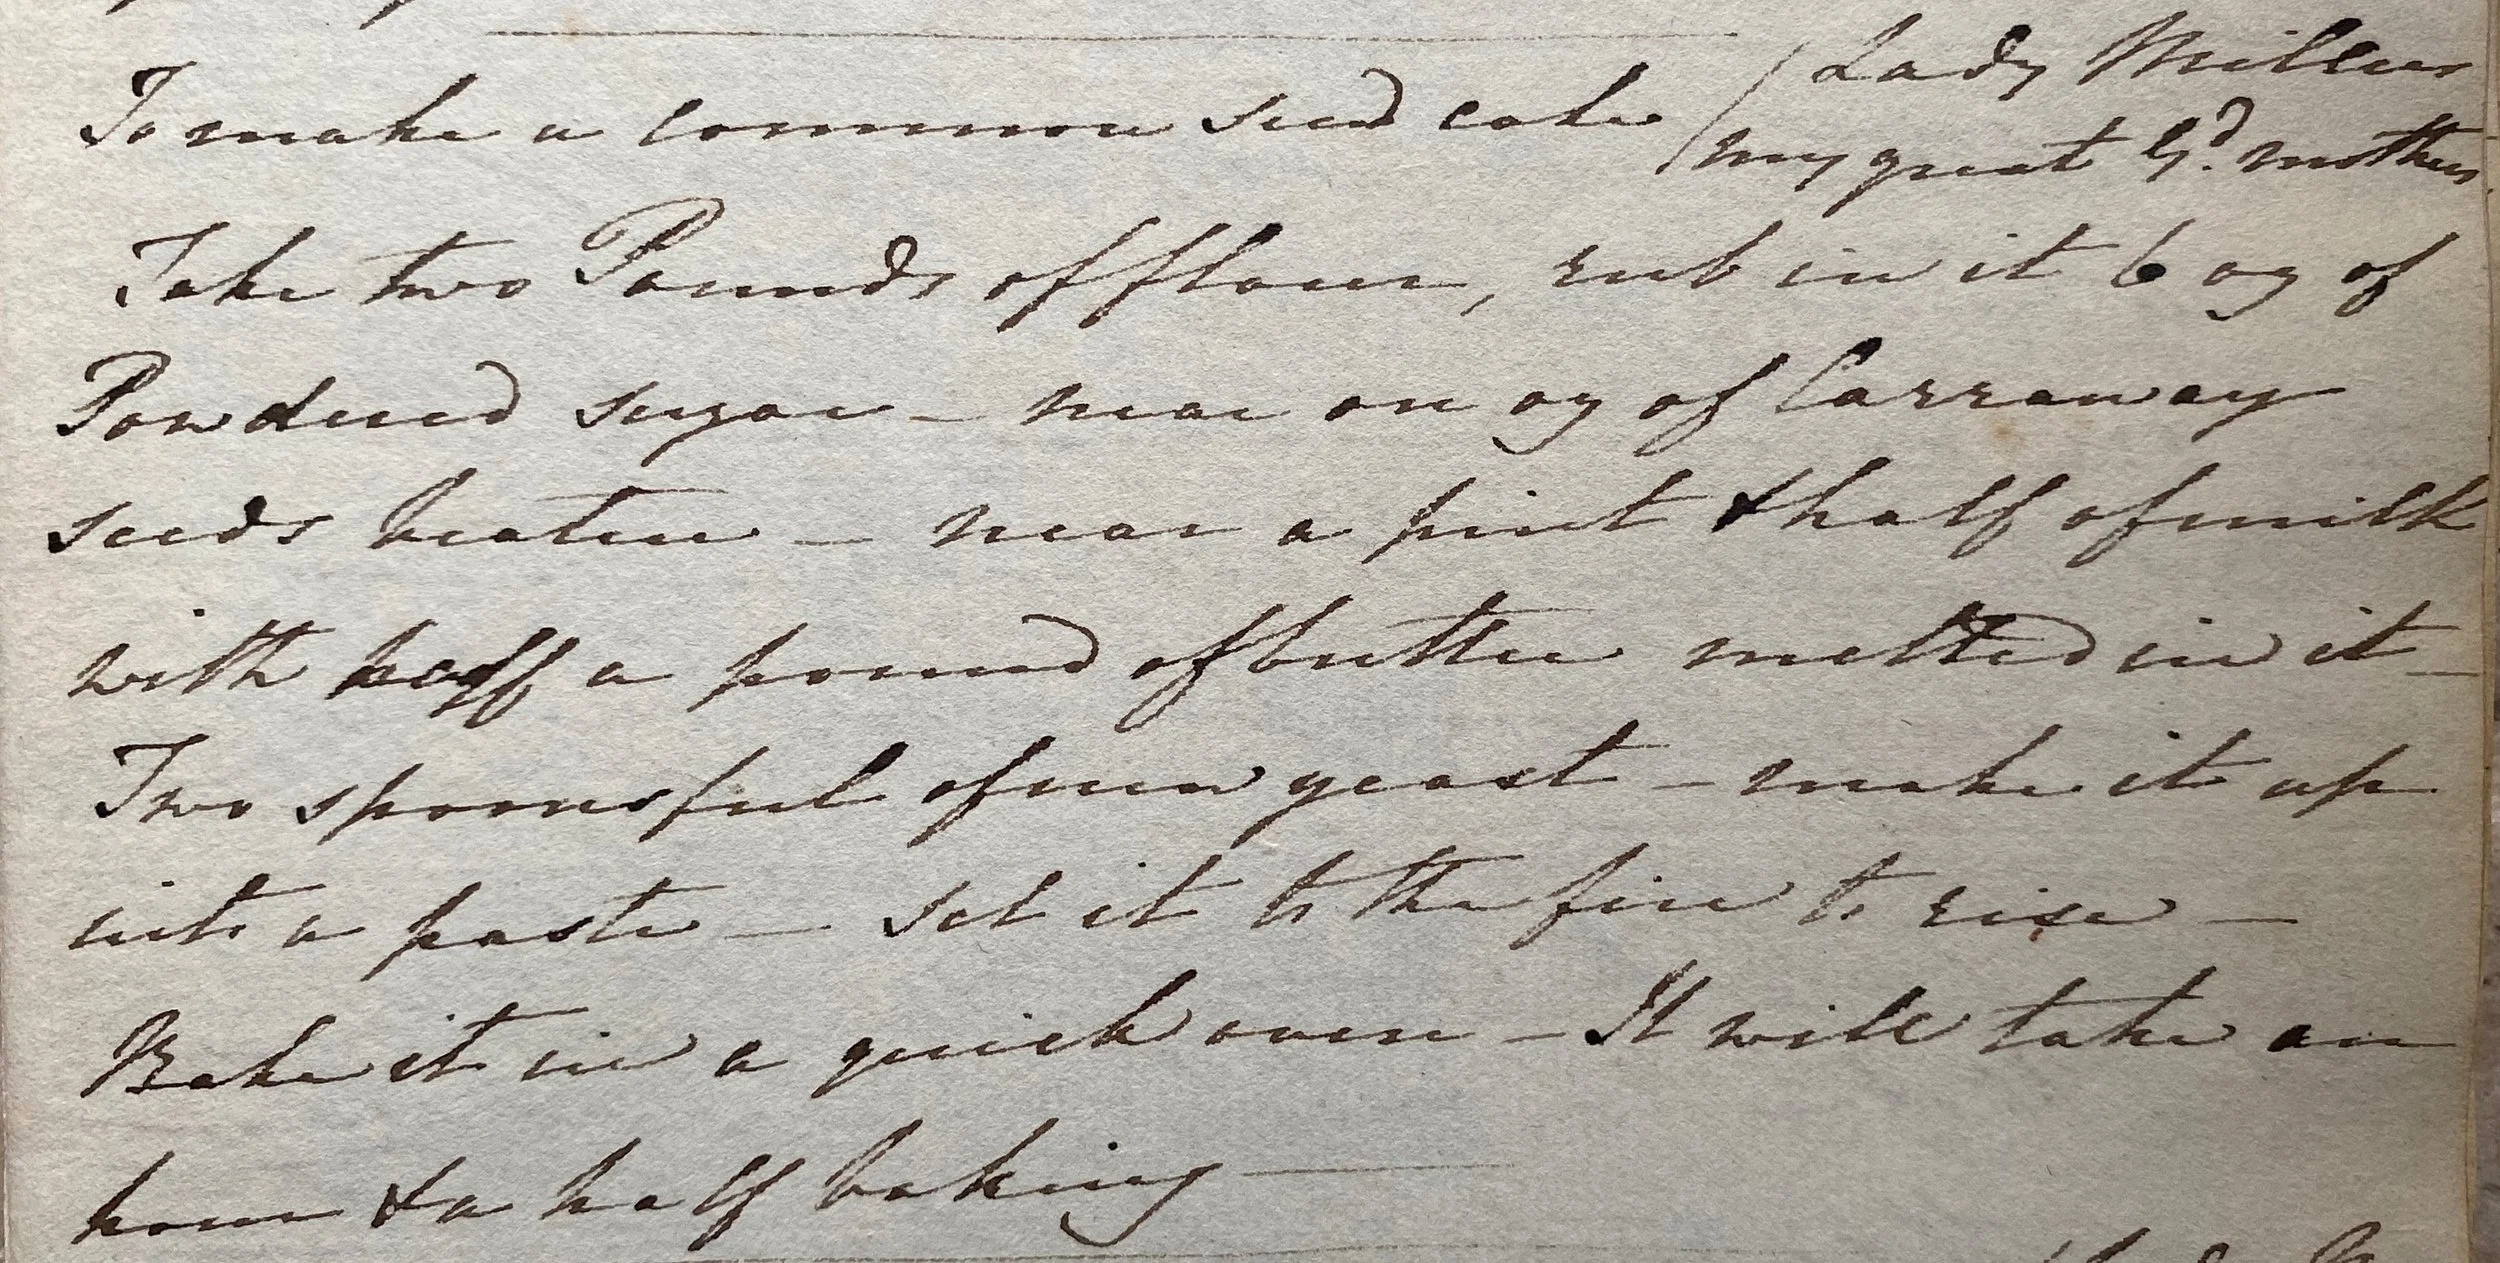 To make a common seed cake / Lady Millers
my great Gd. mothers
Take two Pounds of flour, rub in it 6 oz of
Powdered sugar – near an oz of Carraway
seeds beaten – near a pint & half of milk
with half a pound of butter melted in it –
Two spoonsful of new yeast – make it up
into a paste – set it to the fire to rise –
Bake it in a quick oven – It will take an
hour & a half baking —